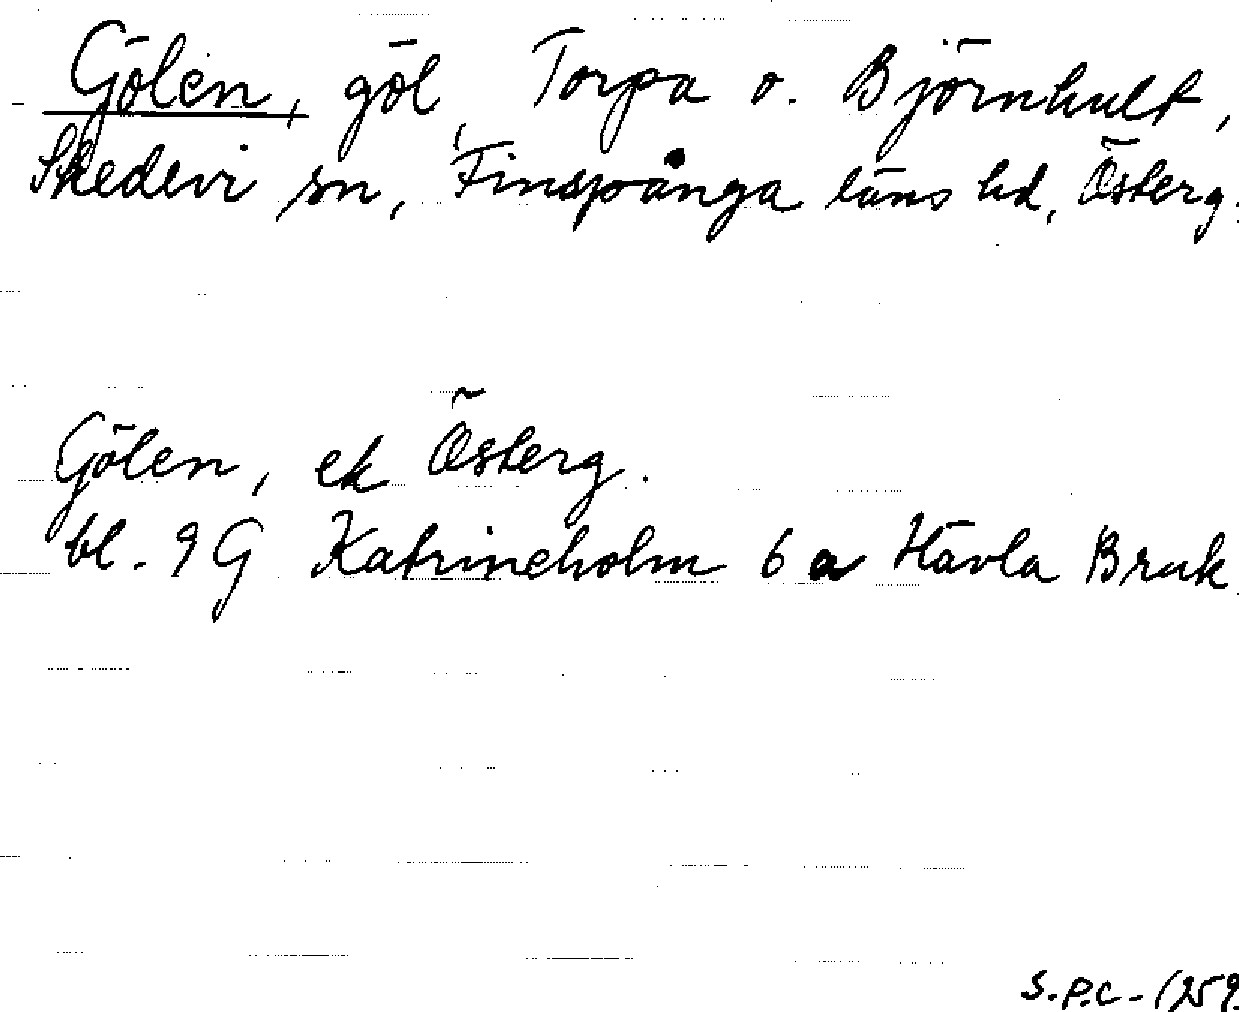 Gölen, göl, Torpa o. Björnhult,
Skedevi sn, Finspånga läns hd, Österg.
Gölen, ek Österg.
bl. 9G Katrineholm 6 a Hävla Bruk
S.P.C-(259